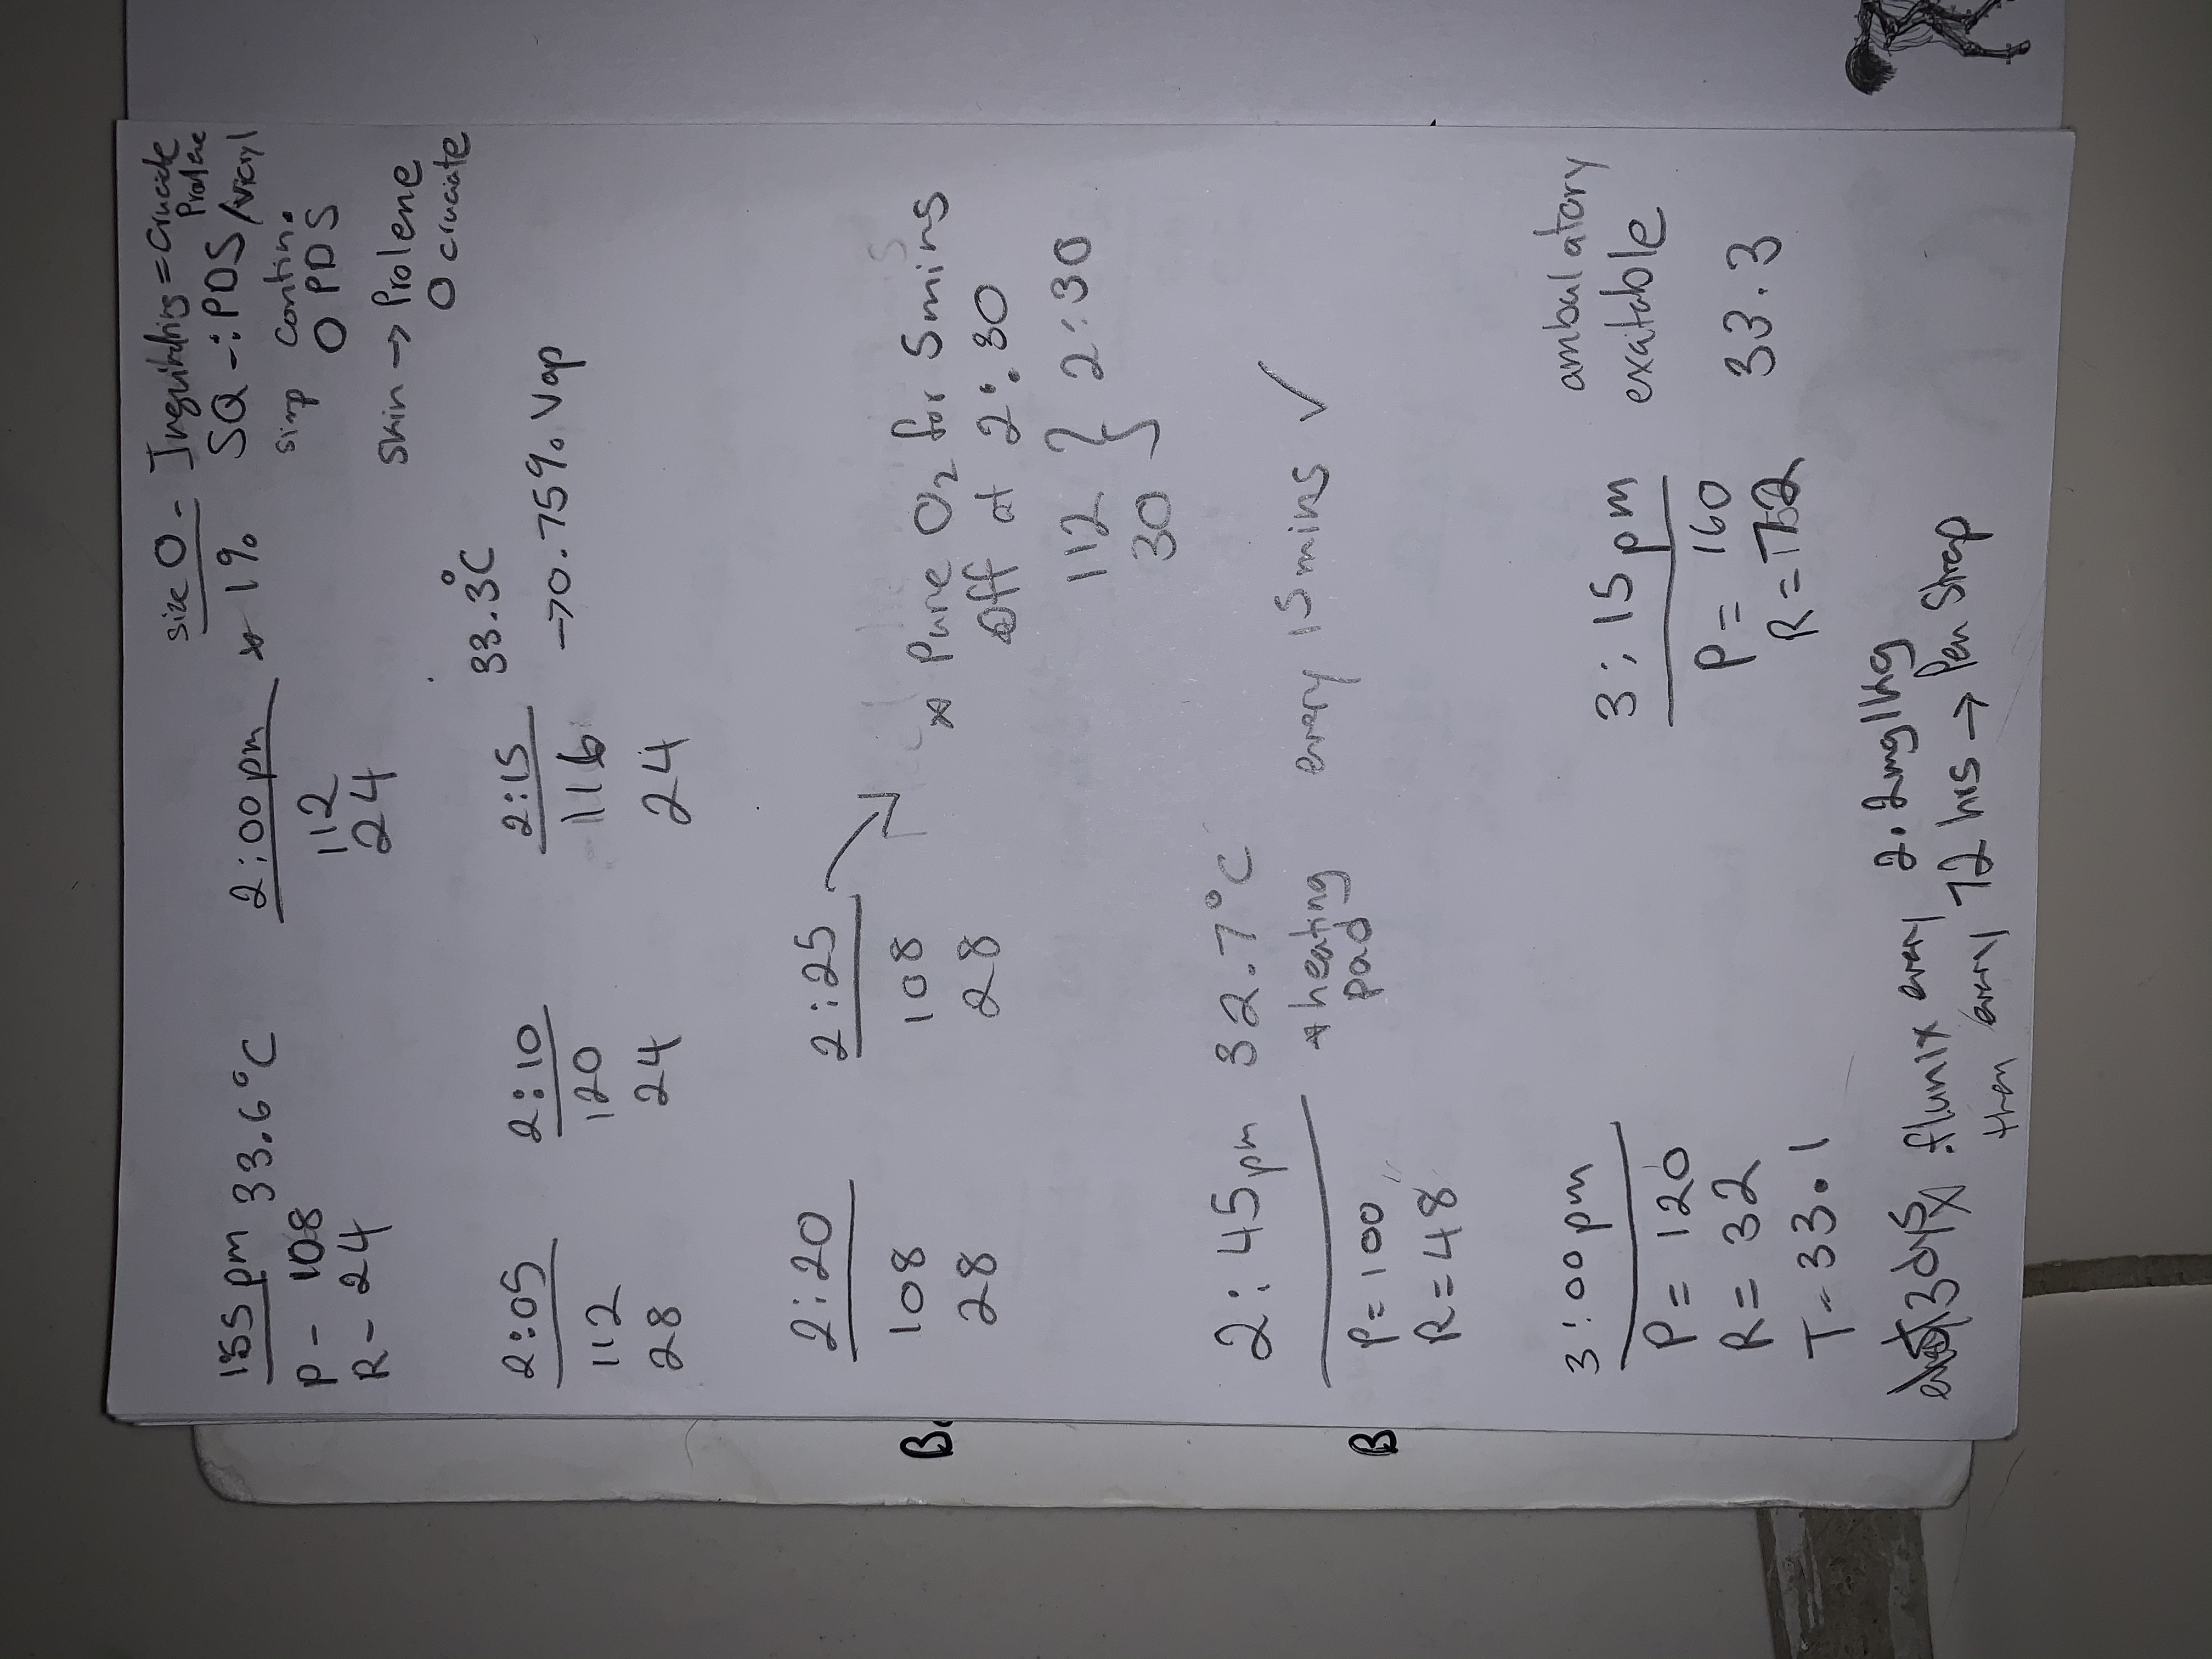 size 0 - Inguinal ring = cruciate
Prolene
155 pm 33.6°C 2:00 pm * 1% SQ -: PDS/vicryl
P - 108 112 simp contin.
R - 24 24 0 PDS
skin → Prolene
0 cruciate
2:05 2:10 2:15 33.3°C
112 120 116 → 0.75% Vap
28 24 24
2:20 2:25
108 108 * Pure O2 for 5mins
28 28 Off at 2:30
112 } 2:30
30
2:45 pm 32.7°C
P = 100 * heating every 15 mins ✓
R = 48 pad
3:00 pm 3:15 pm ambulatory
P = 120 P = 160 excitable
R = 32 R = 33.3
T - 33.1
3 days flunix every 2.2mg/kg
then every 72 hrs → Pen Strep
B
B